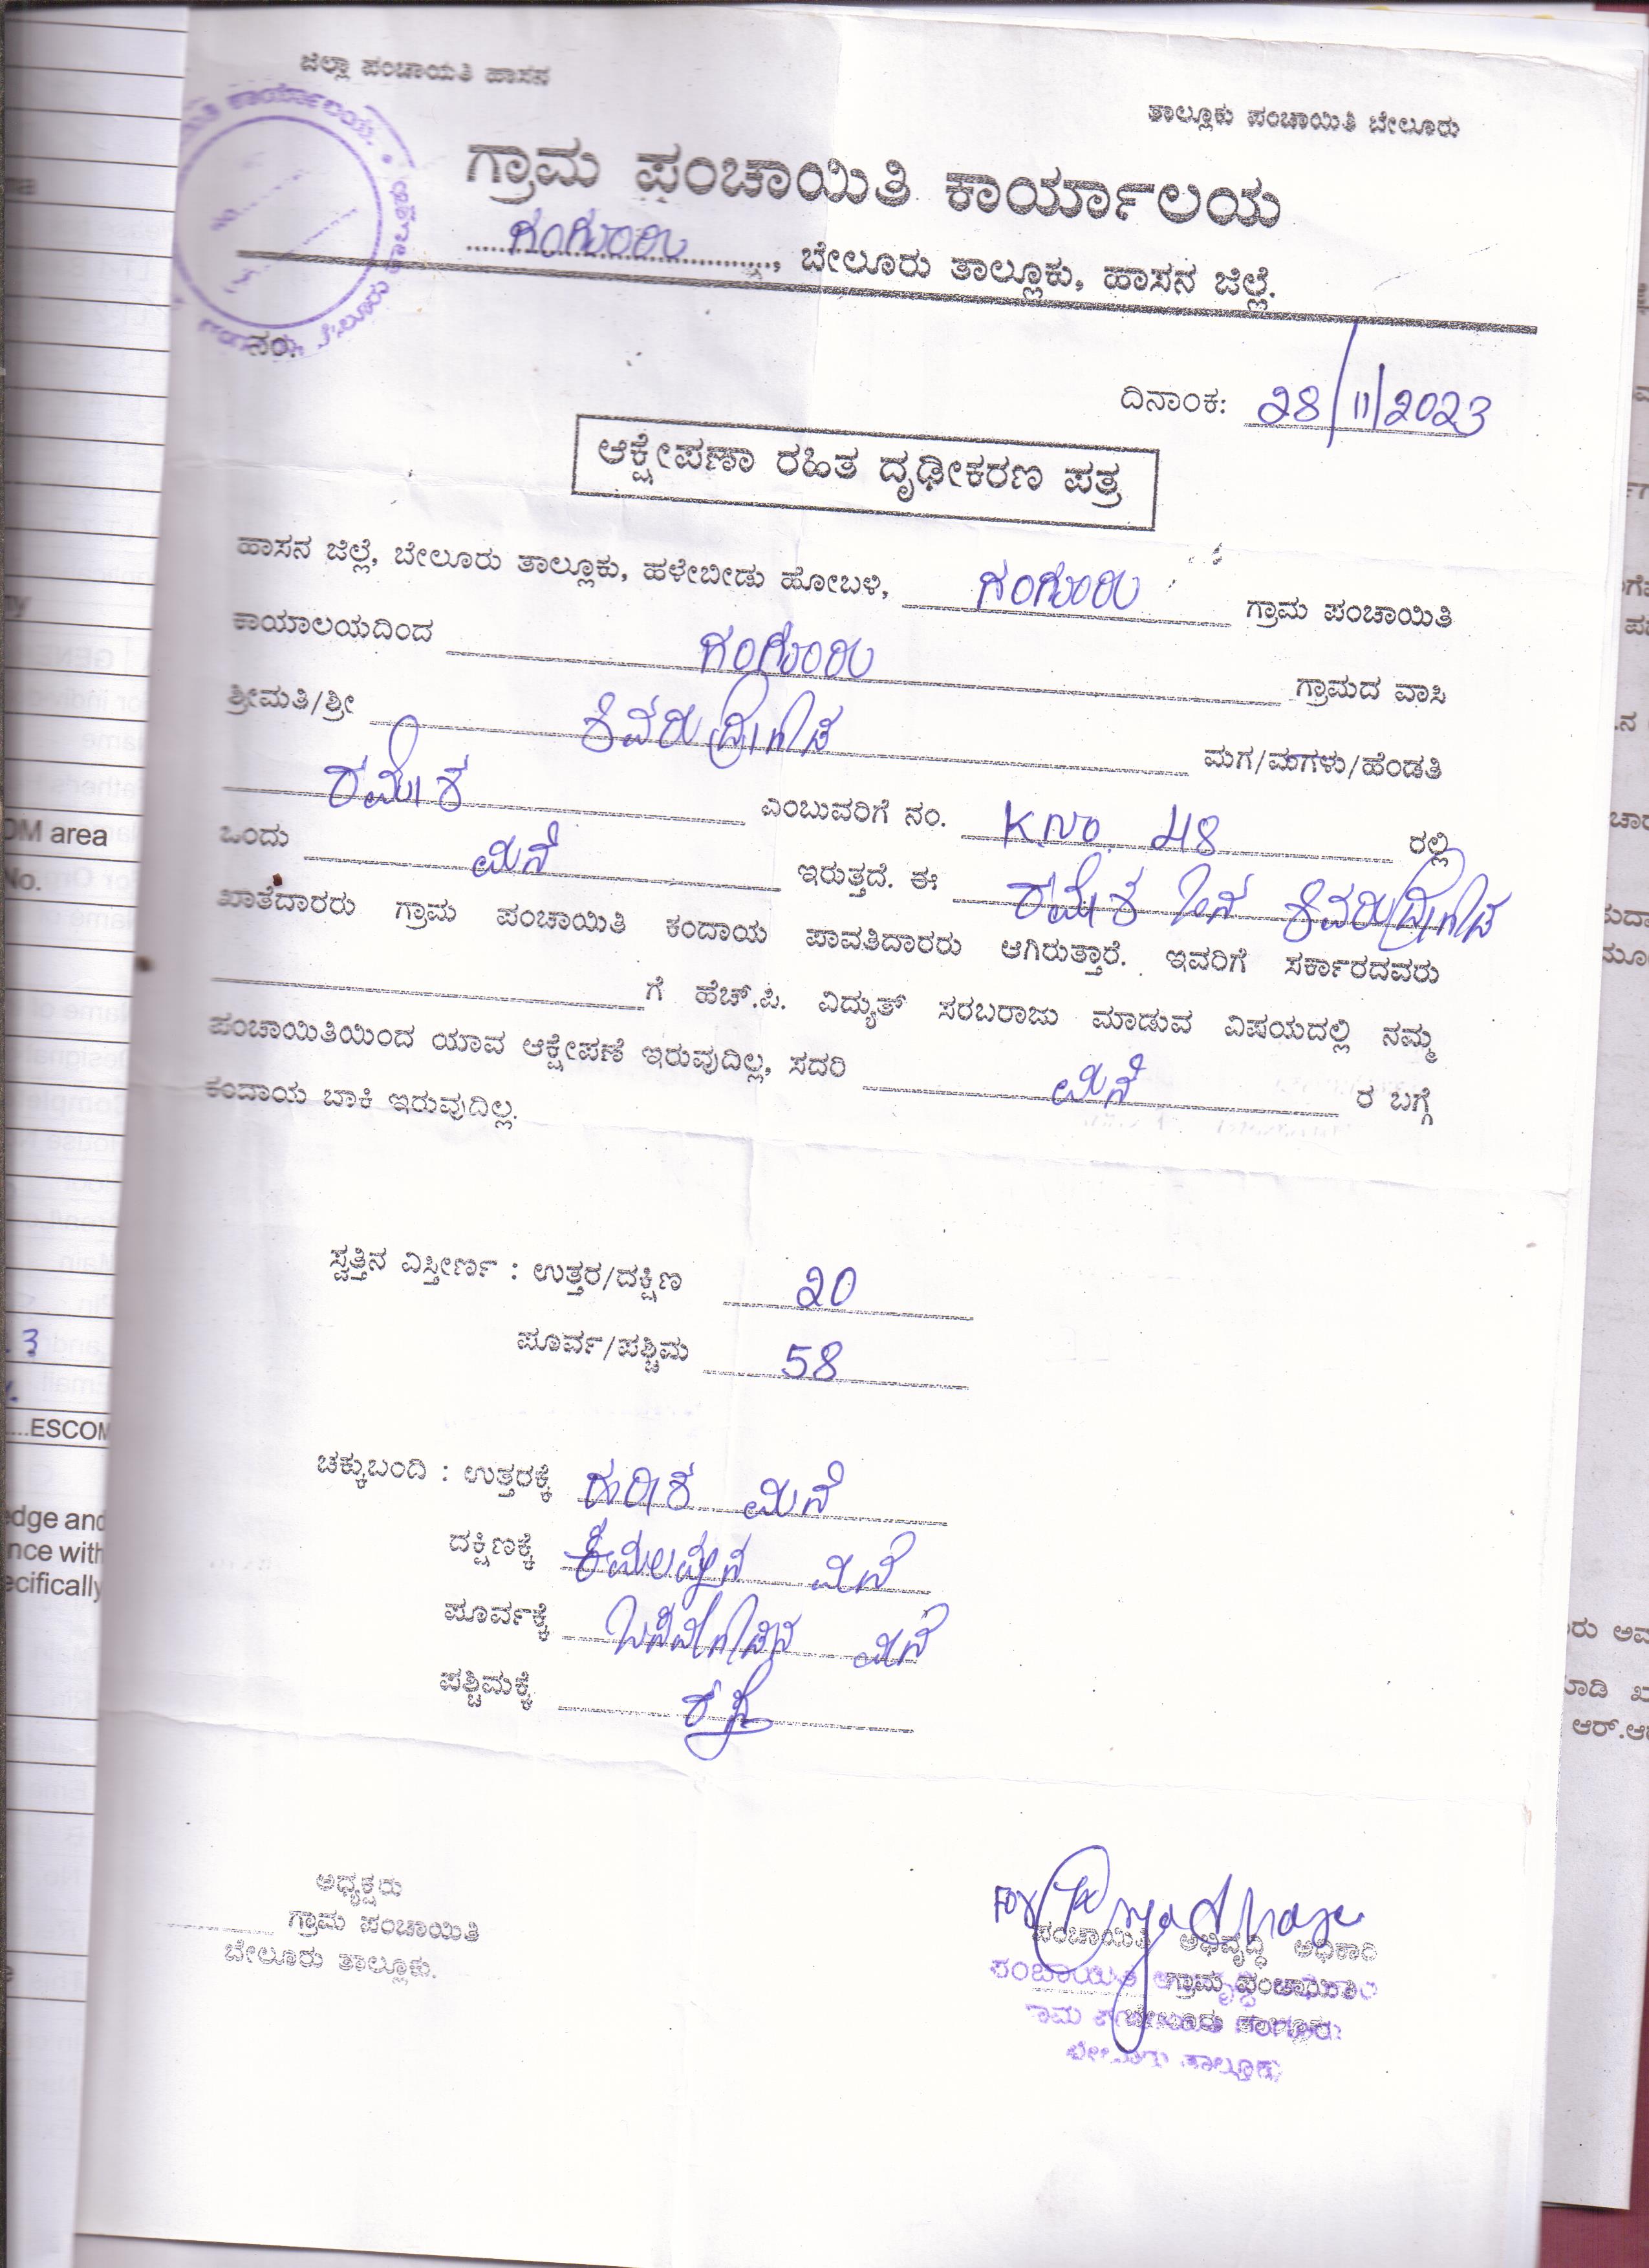 ಜಿಲ್ಲಾ ಪಂಚಾಯತಿ ಹಾಸನ
ತಾಲ್ಲೂಕು ಪಂಚಾಯಿತಿ ಬೇಲೂರು
ಗ್ರಾಮ ಪಂಚಾಯಿತಿ ಕಾರ್ಯಾಲಯ
ಗಂಗೂರು, ಬೇಲೂರು ತಾಲ್ಲೂಕು, ಹಾಸನ ಜಿಲ್ಲೆ.
ನಂ.
ದಿನಾಂಕ: 28/11/2023
ಆಕ್ಷೇಪಣಾ ರಹಿತ ದೃಢೀಕರಣ ಪತ್ರ
ಹಾಸನ ಜಿಲ್ಲೆ, ಬೇಲೂರು ತಾಲ್ಲೂಕು, ಹಳೇಬೀಡು ಹೋಬಳಿ, ಗಂಗೂರು ಗ್ರಾಮ ಪಂಚಾಯಿತಿ
ಕಾರ್ಯಾಲಯದಿಂದ ಗಂಗೂರು ಗ್ರಾಮದ ವಾಸಿ
ಶ್ರೀಮತಿ/ಶ್ರೀ ಶಿವರುದ್ರೇಗೌಡ ಮಗ/ಮಗಳು/ಹೆಂಡತಿ
ರಮೇಶ ಎಂಬುವರಿಗೆ ನಂ. K.No. 48 ರಲ್ಲಿ
ಒಂದು ಮನೆ ಇರುತ್ತದೆ. ಈ ರಮೇಶ ಬಿನ್ ಶಿವರುದ್ರೇಗೌಡ
ಖಾತೆದಾರರು ಗ್ರಾಮ ಪಂಚಾಯಿತಿ ಕಂದಾಯ ಪಾವತಿದಾರರು ಆಗಿರುತ್ತಾರೆ. ಇವರಿಗೆ ಸರ್ಕಾರದವರು
ಗೆ ಹೆಚ್.ಪಿ. ವಿದ್ಯುತ್ ಸರಬರಾಜು ಮಾಡುವ ವಿಷಯದಲ್ಲಿ ನಮ್ಮ
ಪಂಚಾಯಿತಿಯಿಂದ ಯಾವ ಆಕ್ಷೇಪಣೆ ಇರುವುದಿಲ್ಲ, ಸದರಿ ಮನೆ ರ ಬಗ್ಗೆ
ಕಂದಾಯ ಬಾಕಿ ಇರುವುದಿಲ್ಲ.
ಸ್ವತ್ತಿನ ವಿಸ್ತೀರ್ಣ : ಉತ್ತರ/ದಕ್ಷಿಣ 20
ಪೂರ್ವ/ಪಶ್ಚಿಮ 58
ಚಕ್ಕುಬಂದಿ : ಉತ್ತರಕ್ಕೆ ಹರೀಶ ಮನೆ
ದಕ್ಷಿಣಕ್ಕೆ ಮನೆ
ಪೂರ್ವಕ್ಕೆ ಮನೆ
ಪಶ್ಚಿಮಕ್ಕೆ ರಸ್ತೆ
ಅಧ್ಯಕ್ಷರು
ಗ್ರಾಮ ಪಂಚಾಯಿತಿ
ಬೇಲೂರು ತಾಲ್ಲೂಕು.
For
ಪಂಚಾಯಿತಿ ಅಭಿವೃದ್ಧಿ ಅಧಿಕಾರಿ
ಗ್ರಾಮ ಪಂಚಾಯಿತಿ
ಬೇಲೂರು ತಾಲ್ಲೂಕು
OM area
No.
....ESCOM